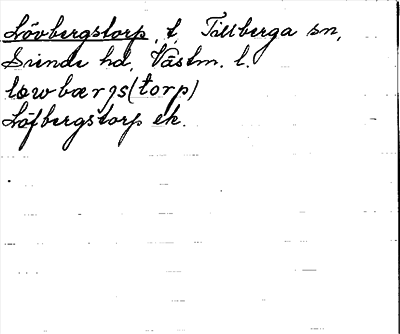 Lövbergstorp, t, Tillberga sn,
Siende hd, Västm. l.
løwbærgs(torp)
Löfbergstorp ek.